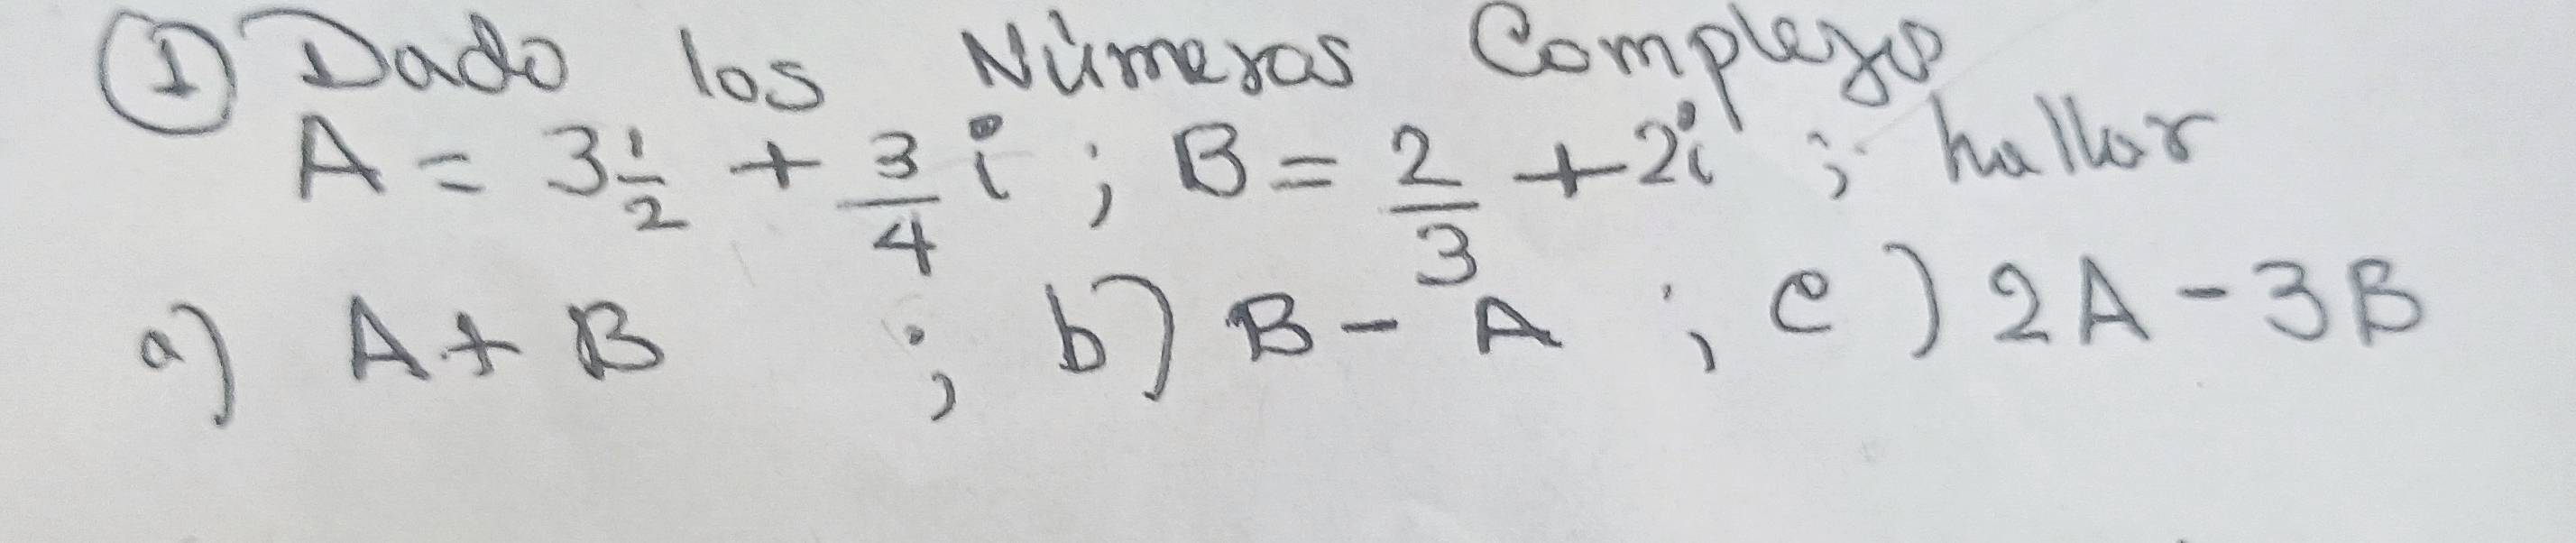 ① Dado los Números Complejos
A = 3 1/2 + 3/4 i ; B = 2/3 + 2i ; hallar
a) A + B ; b) B - A ; c) 2A - 3B